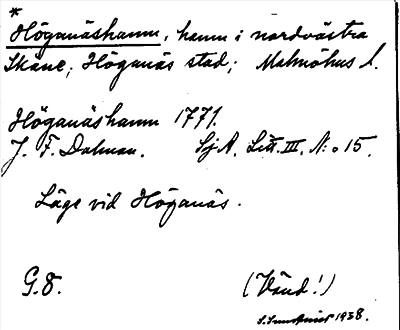 *
Höganäshamn, hamn i nordvästra
Skåne; Höganäs stad; Malmöhus l.
Höganäshamn 1771.
J. F. Dalman. SjA, Litt. III, N:o 15.
Läge vid Höganäs.
G.8. (Vänd!)
1938.